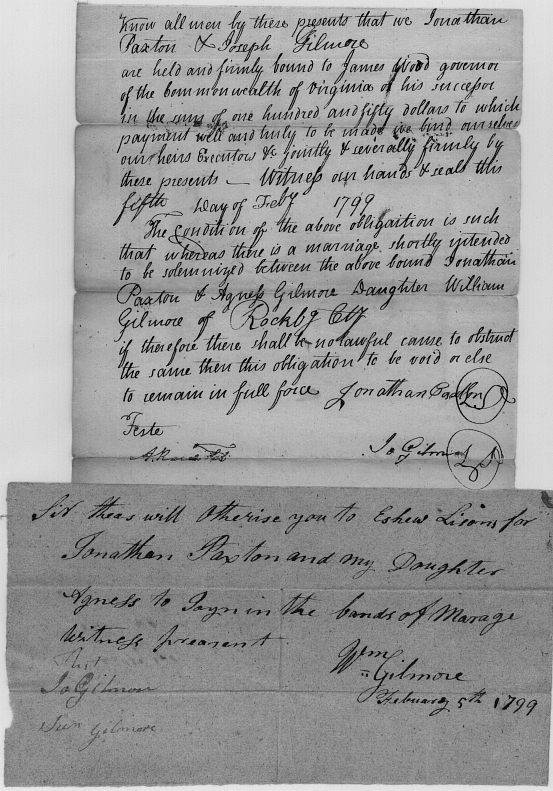 Know all men by these presents that we Jonathan
Paxton & Joseph Gilmore
are held and firmly bound to James Wood governor
of the Commonwealth of virginia or his successor
in the sum of one hundred and fifty dollars to which
payment well and truly to be made we bind ourselves
our heirs Executors &c jointly & severally firmly by
these presents — Witness our hands & seals this
fifth Day of Feby 1799
The Condition of the above obligaition is such
that whereas there is a marriage shortly intended
to be solemnized between the above bound Jonathan
Paxton & Agness Gilmore Daughter William
Gilmore of Rockbg Cty
if therefore there shall be no lawful cause to obstruct
the same then this obligation to be void or else
to remain in full force Jonathan Paxton LS
Teste
Jo Gilmore LS
Sir theas will Otherise you to Eshew Lisons for
Jonathan Paxton and my Daughter
Agness to Joyn in the bands of Marage
Witness preasent
Wm
Gilmore
Test
Jo Gilmore
February 5th 1799
Gilmore